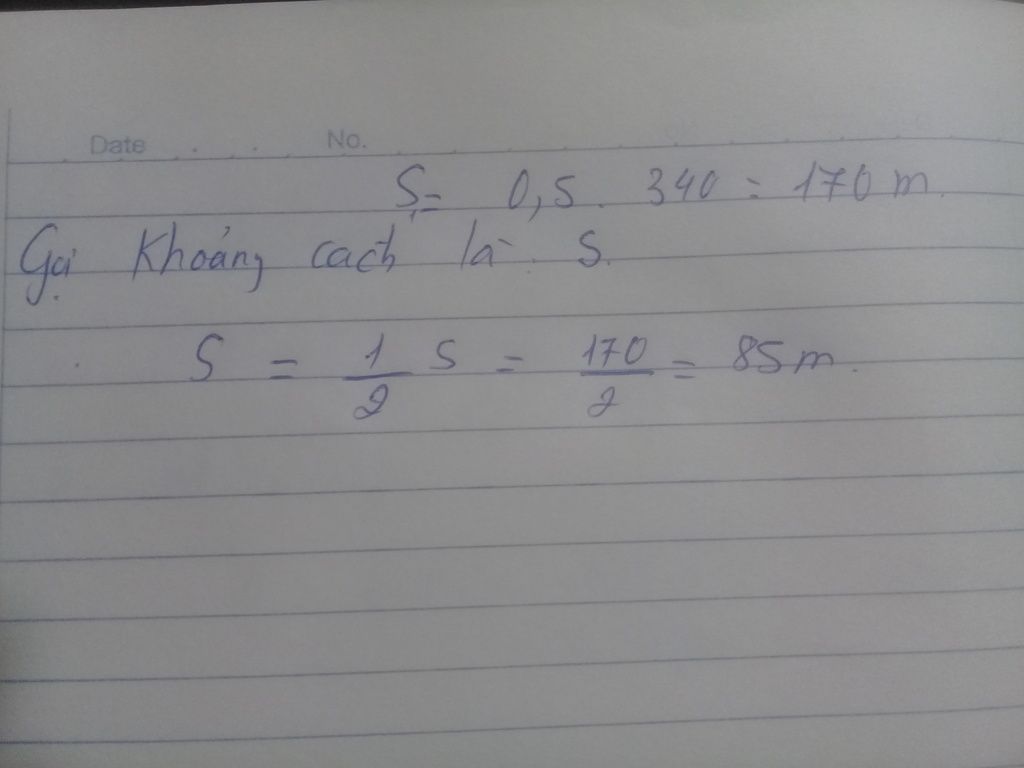 Date No.
S₁= 0,5. 340 = 170 m.
Gọi Khoảng cách là S.
S = 1/2 S = 170/2 = 85m.